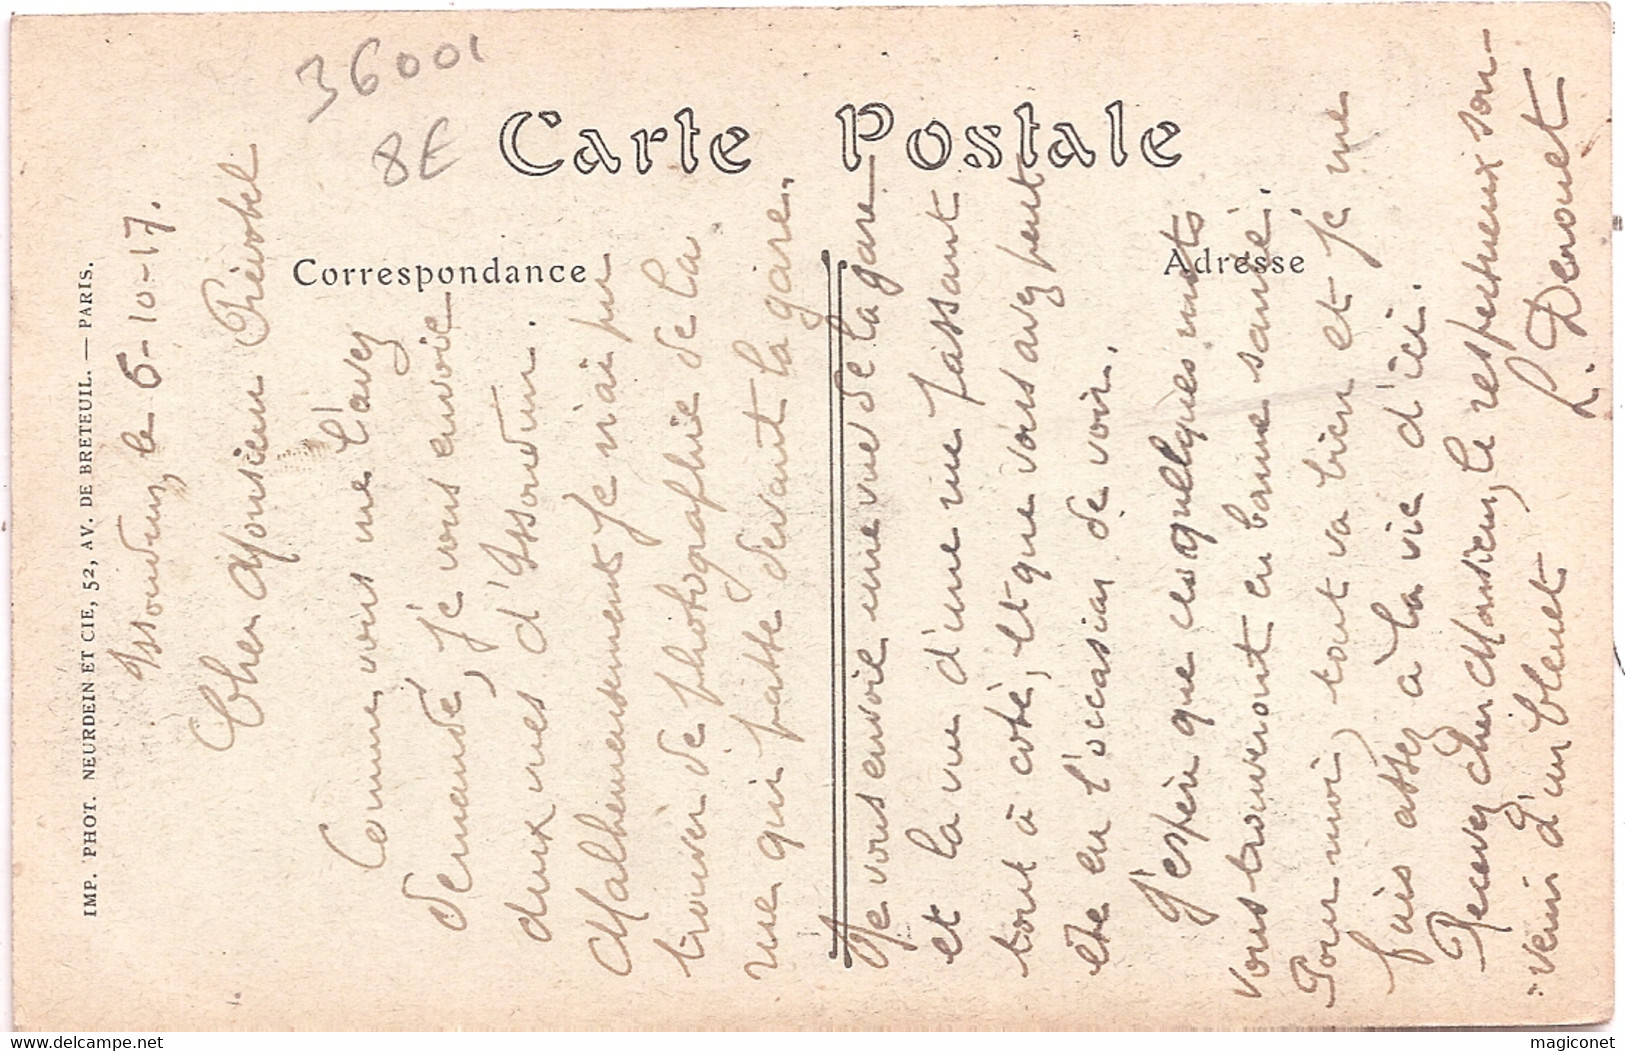 36001
8E
Carte Postale
Correspondance
Adresse
IMP. PHOT. NEURDEIN ET CIE, 52, AV. DE BRETEUIL. — PARIS.
Issoudun, le 6-10-17.
Cher Monsieur Prévotel
Comme vous me l'avez
demandé, je vous envoie
deux vues d'Issoudun.
Malheureusement je n'ai pu
trouver de photographie de la
rue qui passe devant la gare.
Je vous envoie une vue de la gare
et la vue d'une rue passant
tout à coté, et que vous avez peut
être eu l'occasion de voir.
J'espère que ces quelques mots
vous trouveront en bonne santé.
Pour moi, tout va bien et je me
fais assez à la vie d'ici.
Recevez cher Monsieur, le respectueux sou-
-venir d'un bleuet
L. Denouet
delcampe.net
magiconet